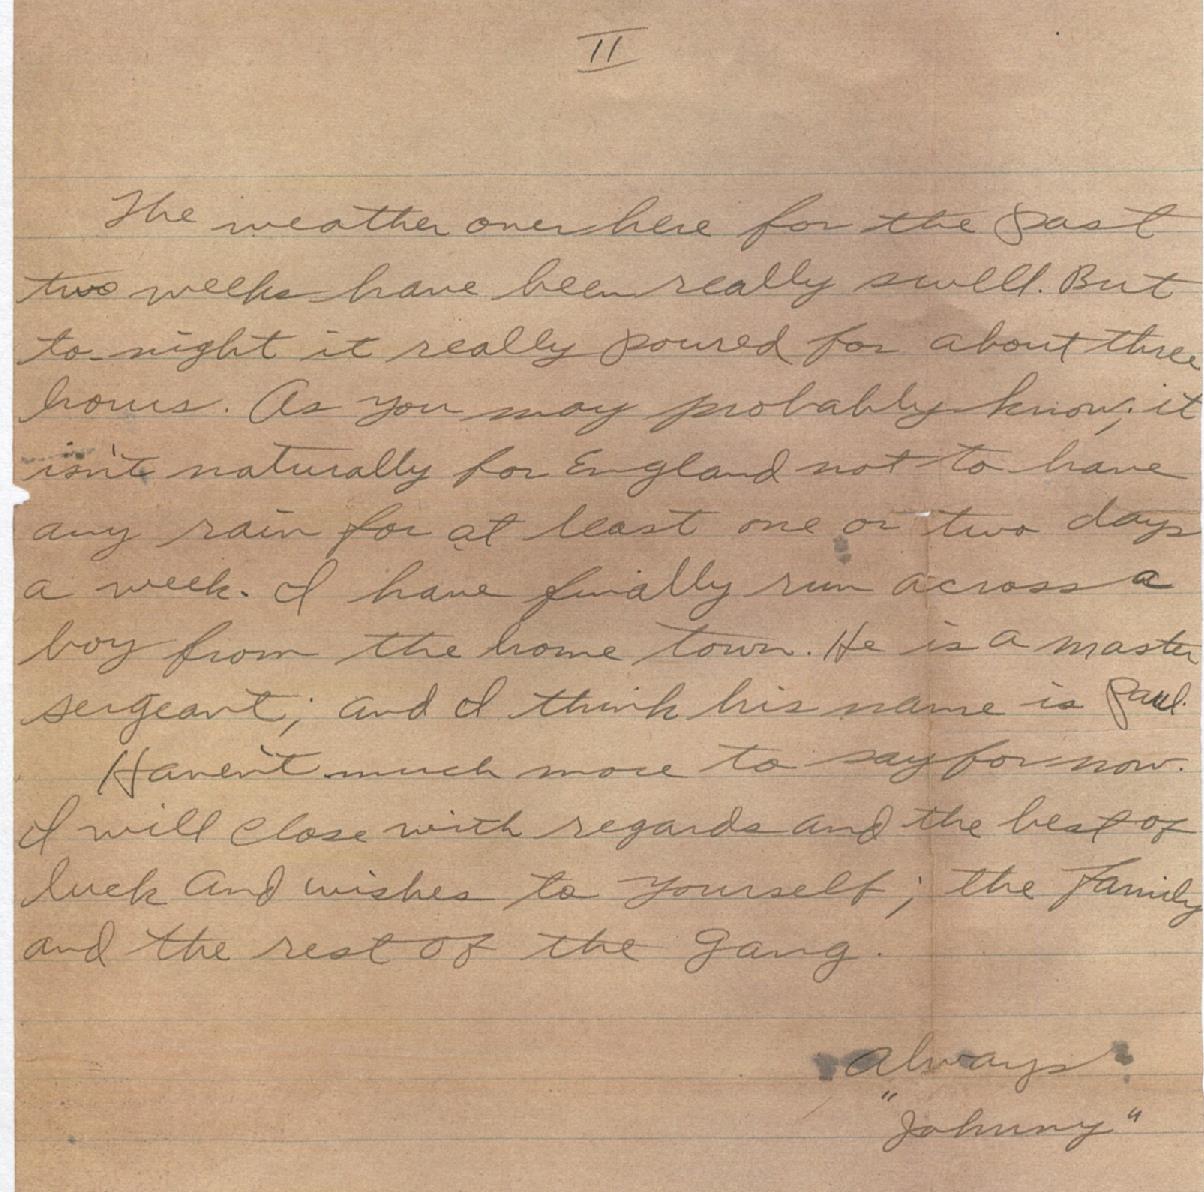 II
The weather over here for the past
two weeks have been really swell. But
to-night it really poured for about three
hours. As you may probably know; it
isn't naturally for England not to have
any rain for at least one or two days
a week. I have finally run across a
boy from the home town. He is a master
sergeant; and I think his name is Paul.
Haven't much more to say for now.
I will close with regards and the best of
luck and wishes to yourself; the family
and the rest of the gang.
Always
"Johnny"